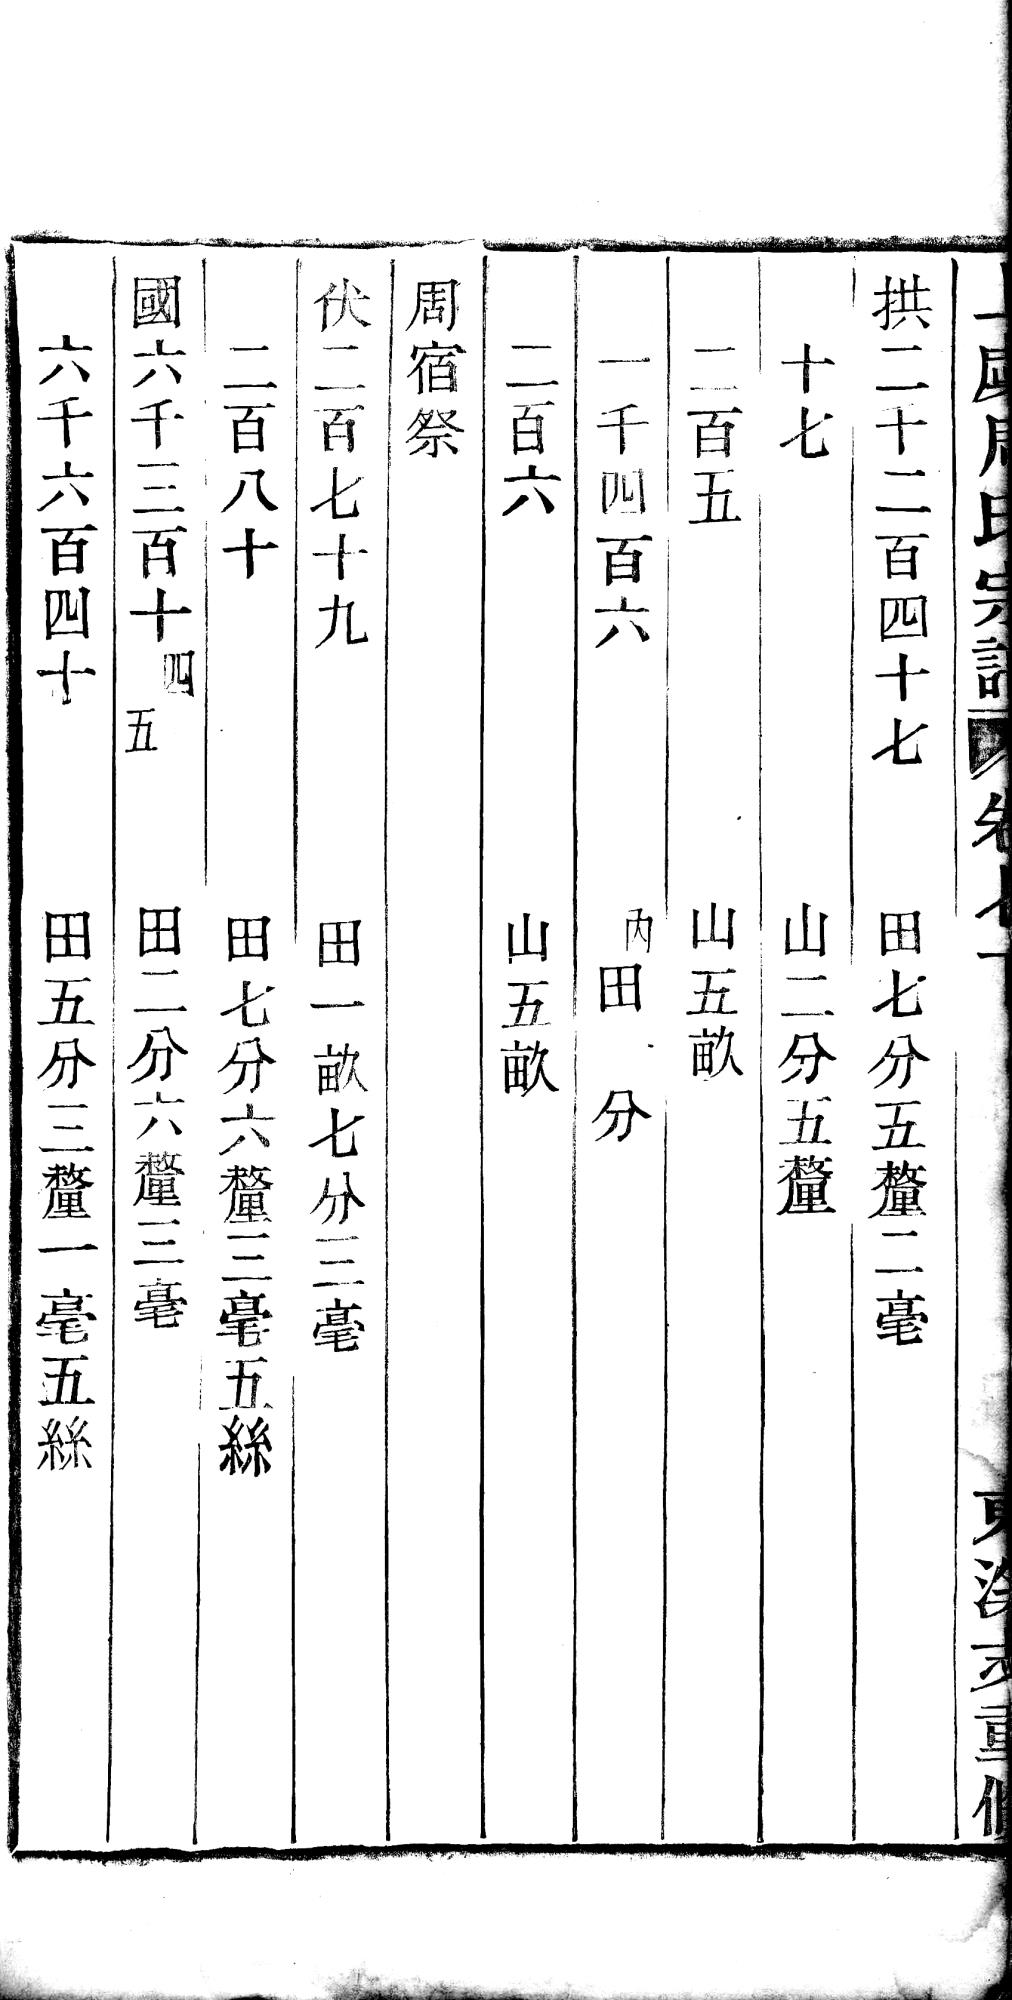 周氏宗譜 卷七 重修
拱二千二百四十七 田七分五釐二毫
十七 山二分五釐
二百五 山五畝
一千四百六 內田 分
二百六 山五畝
周宿祭
伏二百七十九 田一畝七分三毫
二百八十 田七分六釐三毫五絲
國六千三百十四五 田二分六釐三毫
六千六百四十 田五分三釐一毫五絲